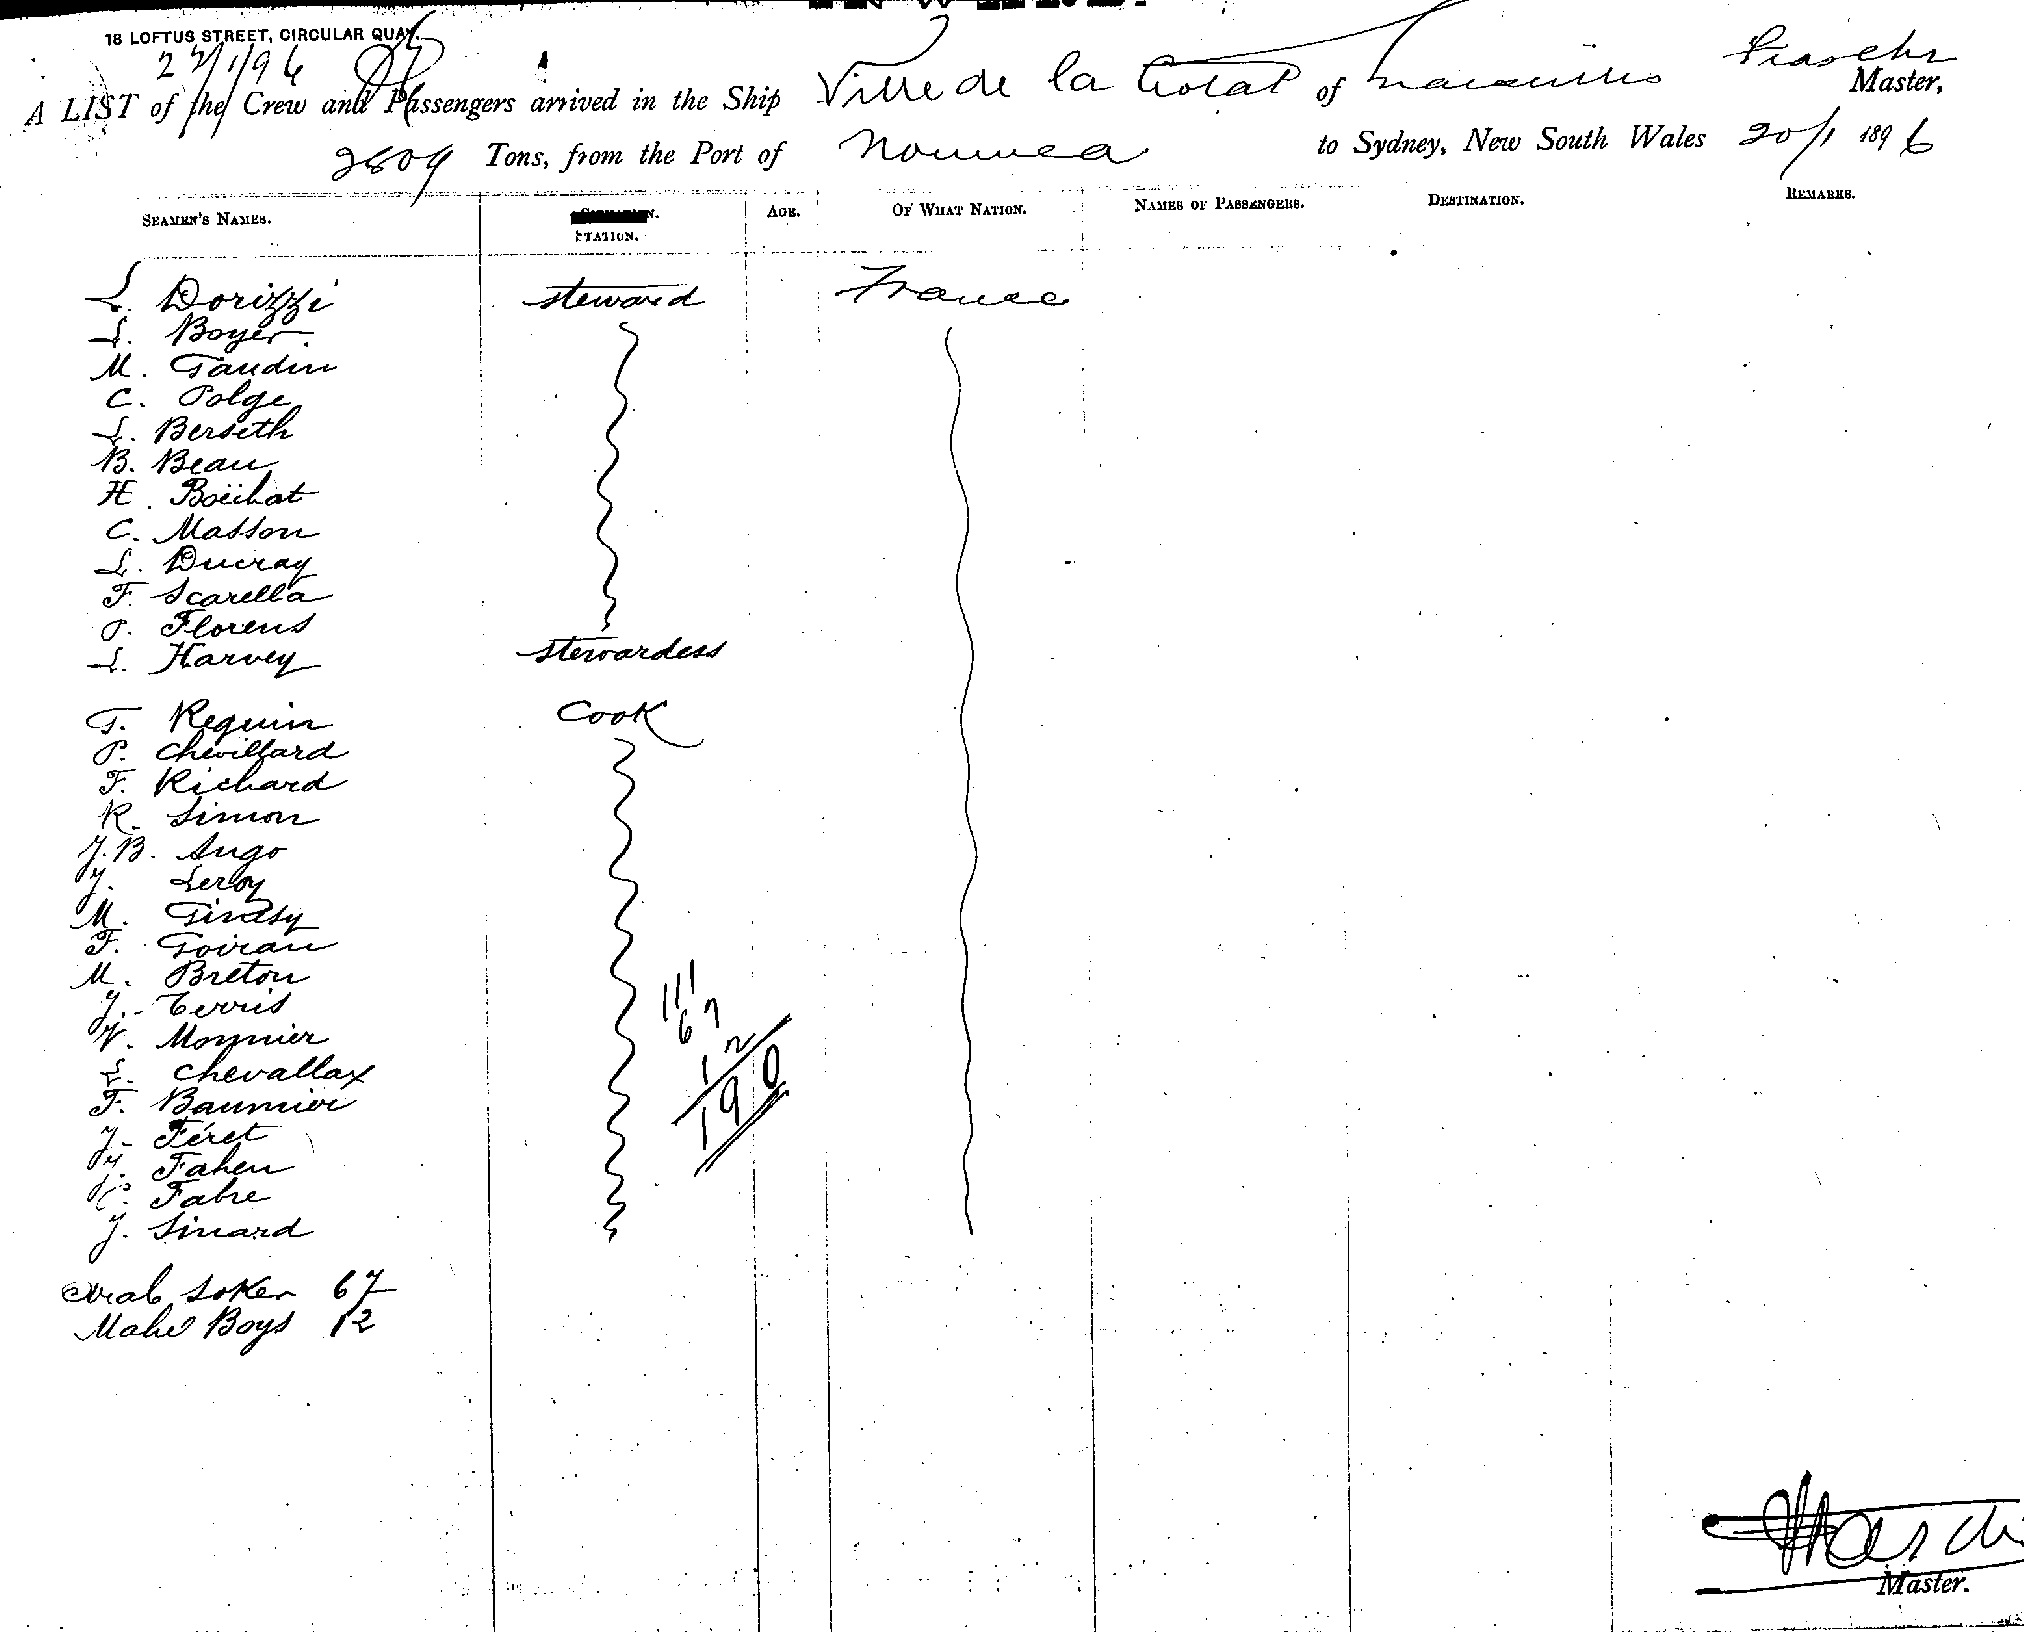 18 LOFTUS STREET, CIRCULAR QUAY.
22/1/96
A LIST of the Crew and Passengers arrived in the Ship Ville de la Ciotat of Marseilles Master,
2809 Tons, from the Port of Noumea to Sydney, New South Wales 20/1 1896
SEAMEN'S NAMES. STATION. AGE. OF WHAT NATION. NAMES OF PASSENGERS. DESTINATION. REMARKS.
L. Dorizzi steward France
L. Boyer
M. Gaudin
C. Polge
L. Berseth
B. Beau
H. Boëchat
C. Masson
L. Ducray
F. Scarella
P. Florens
L. Harvey stewardess
T. Requin Cook
P. Chevillard
F. Richard
R. Simon
J. B. Ango
J. Leroy
M.
F. Goiran
M. Breton
J. Terris
V. Monnier
L. Chevallax
F. Baumier
J. Féret
J. Fahen
P. Fabre
J. Sinard
111
67
12
190
Arab Soker 67
Mahe Boys 12
Master.